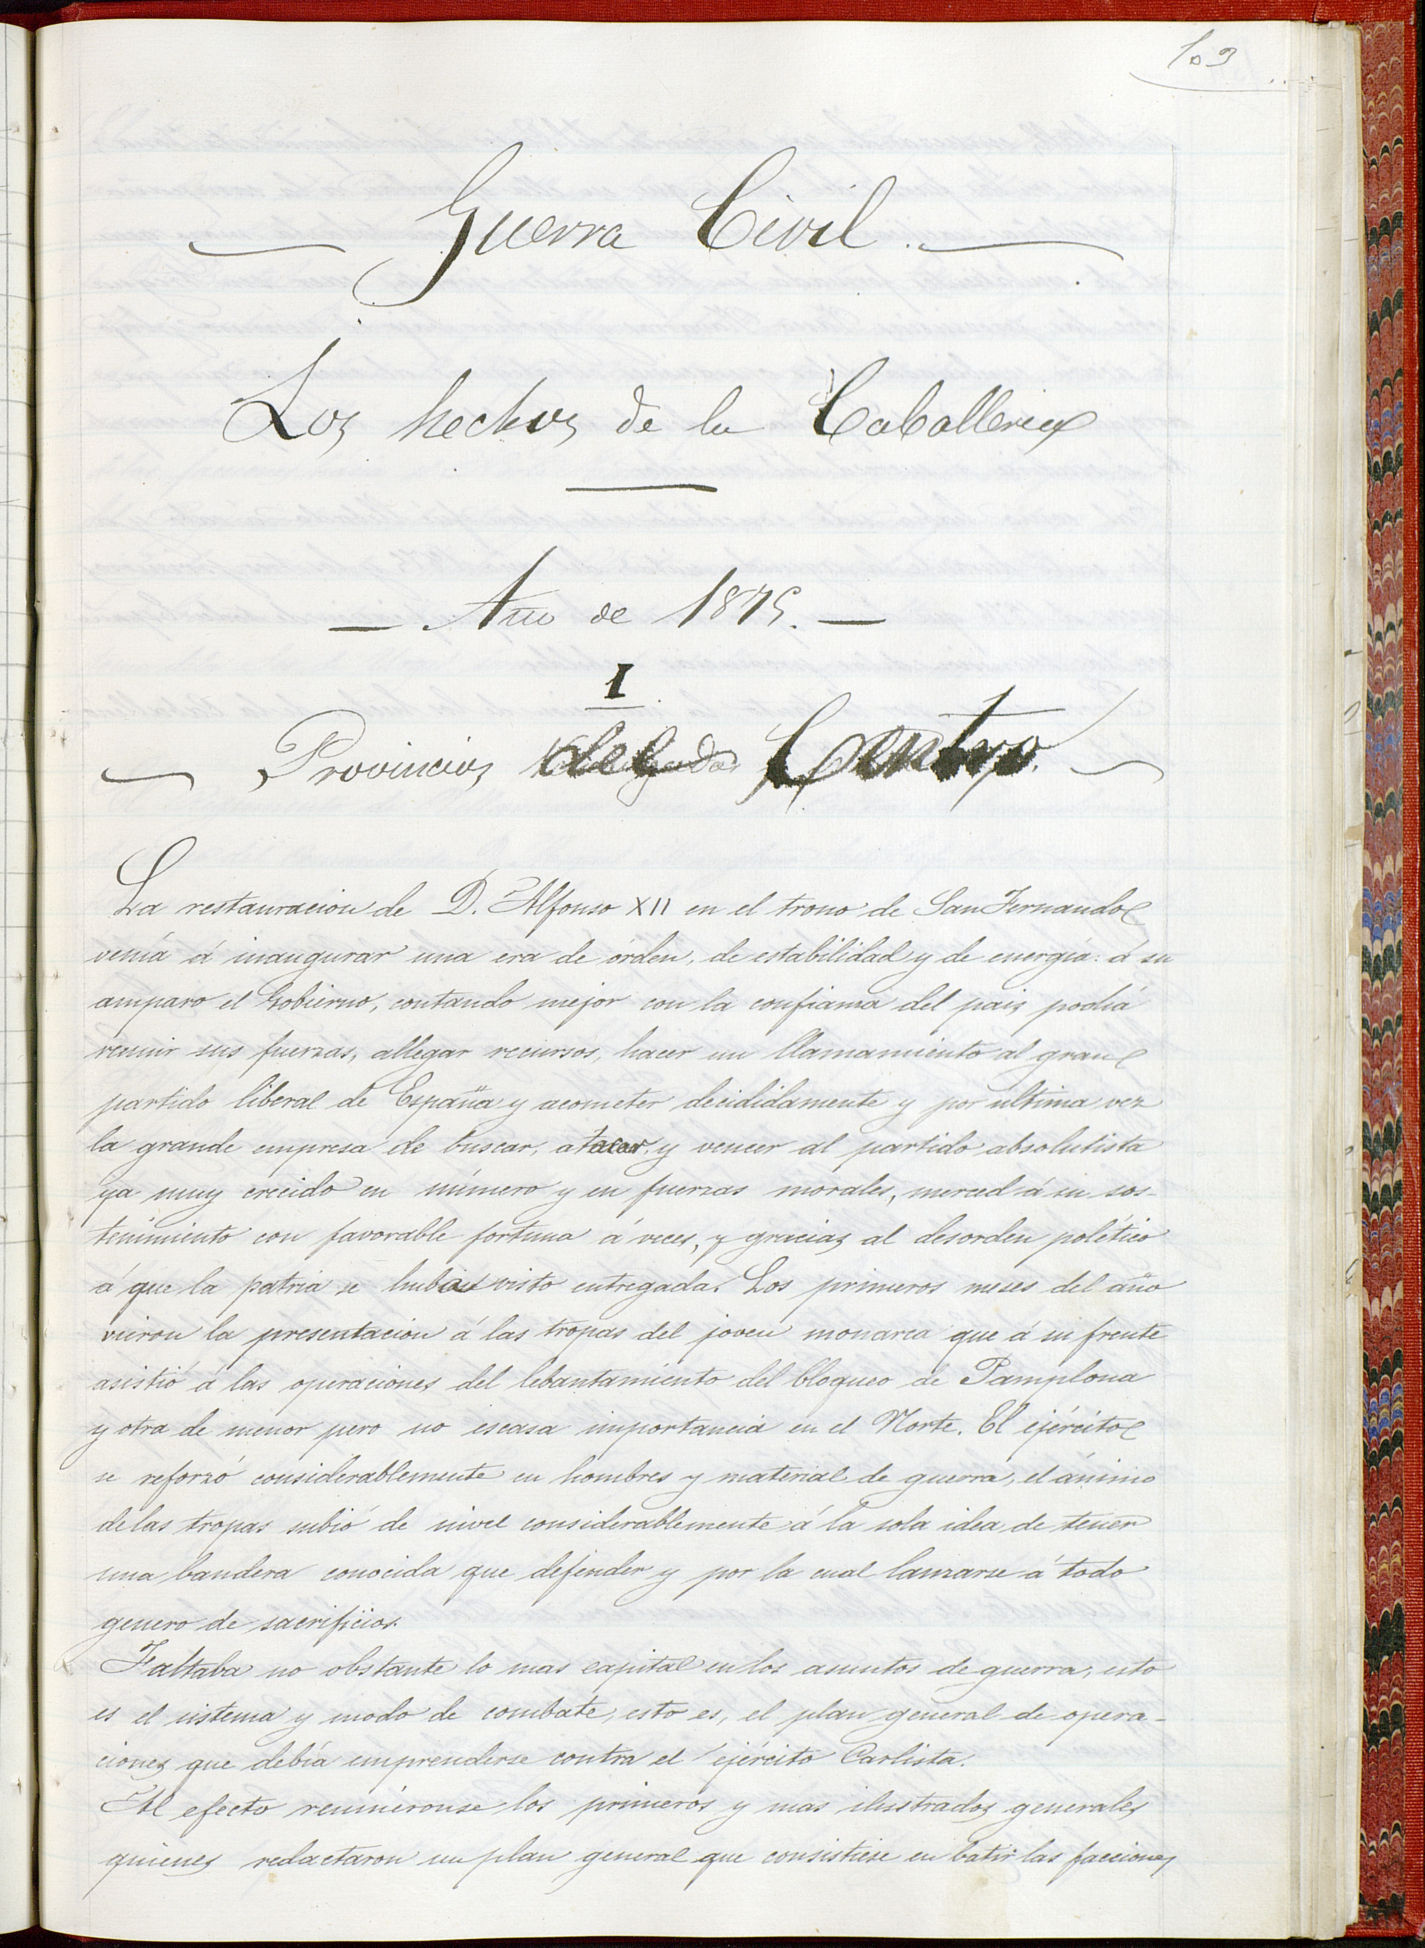 103
Guerra Civil.
Los hechos de la Caballeria
Año de 1875.
I
Provincias del Centro.
La restauracion de D. Alfonso XII en el trono de San Fernando
venía á inaugurar una era de órden, de estabilidad y de energía: á su
amparo el Gobierno, contando mejor con la confianza del pais podia
reunir sus fuerzas, allegar recursos, hacer un llamamiento al gran
partido liberal de España y acometer decididamente y por ultima vez
la grande empresa de buscar, atacar y vencer al partido absolutista
ya muy crecido en número y en fuerzas morales, merced á su sos-
tenimiento con favorable fortuna á veces, y gracias al desorden político
á que la patria se hubo visto entregada. Los primeros meses del año
vieron la presentacion á las tropas del joven monarca que á su frente
asistió á las operaciones del lebantamiento del bloqueo de Pamplona
y otra de menor pero no escasa importancia en el Norte. El ejército
se reforzó considerablemente en hombres y material de guerra, el ánimo
de las tropas subió de nivel considerablemente á la sola idea de tener
una bandera conocida que defender y por la cual lanzarse á todo
genero de sacrificios.
Faltaba no obstante lo mas capital en los asuntos de guerra, esto
es el sistema y modo de combate, esto es, el plan general de opera-
ciones que debía emprenderse contra el ejército Carlista.
Al efecto reuniéronse los primeros y mas ilustrados generales
quienes redactaron un plan general que consistiese en batir las facciones